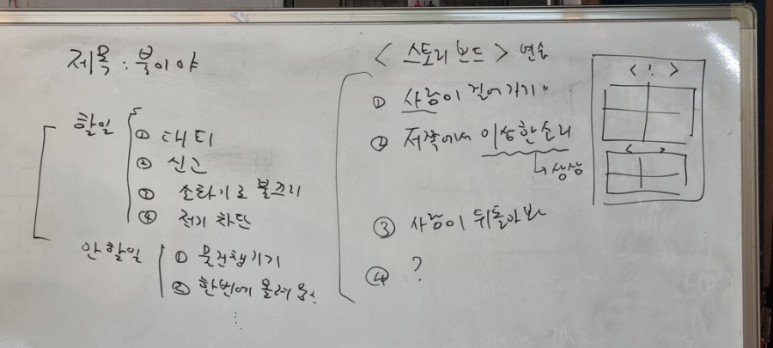 제목: 불이야
할일
① 대피
② 신고
③ 소화기로 불끄기
④ 전기 차단
안할일
① 물건챙기기
② 한번에 몰려옴.
⋮
< 스토리 보드 > 연습
① 사람이 걸어가기
② 저쪽에서 이상한소리
↳ 상상
③ 사람이 뒤돌아봐
④ ?
< ! >
< >